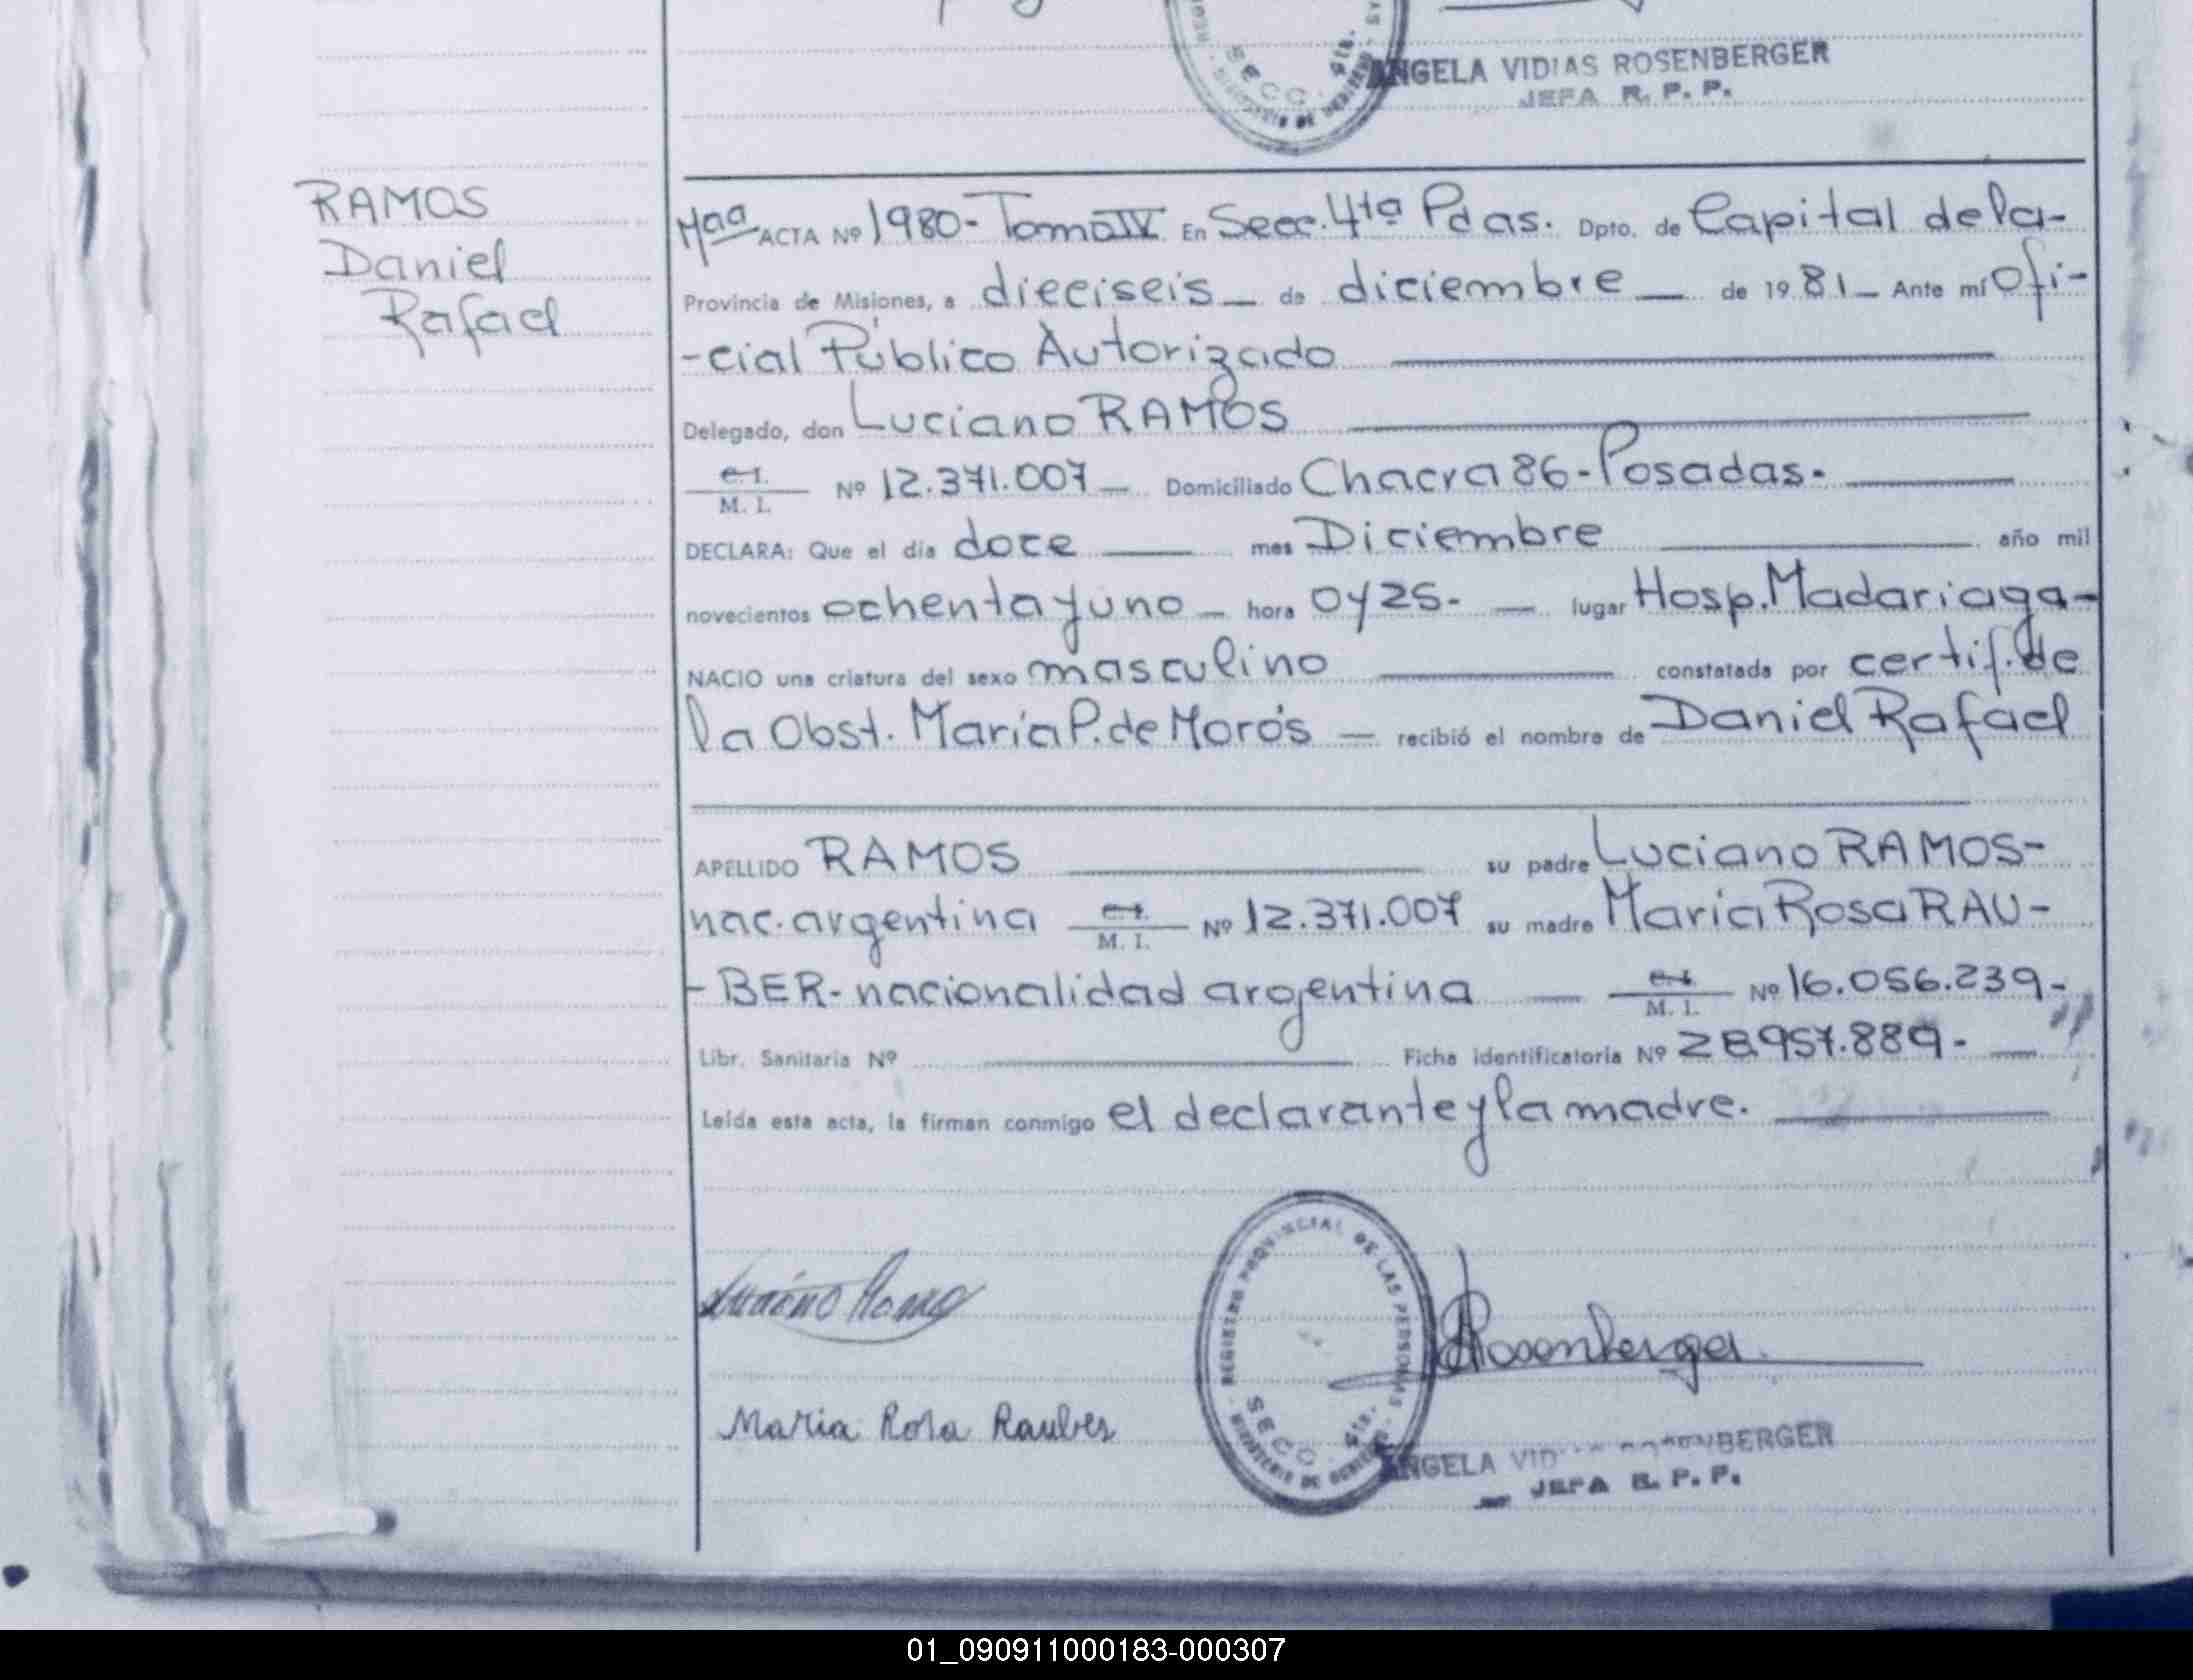 SECC. 4ta.
ANGELA VIDIAS ROSENBERGER
JEFA R. P. P.
RAMOS
Daniel
Rafael
ACTA Nº 1980- Tomo IV En Secc. 4ta Pdas. Dpto. de Capital de la-
Provincia de Misiones, a dieciseis - de diciembre - de 1981 - Ante mí Ofi-
-cial Público Autorizado
Delegado, don Luciano RAMOS
C. I.
M. I. Nº 12.371.007 - Domiciliado Chacra 86 - Posadas.
DECLARA: Que el día doce mes Diciembre año mil
novecientos ochenta y uno - hora 0 y 25. - lugar Hosp. Madariaga-
NACIO una criatura del sexo masculino constatada por certif. de
la Obst. María P. de Morós - recibió el nombre de Daniel Rafael
APELLIDO RAMOS su padre Luciano RAMOS-
nac. argentina C. I. M. I. Nº 12.371.007 su madre María Rosa RAU-
-BER- nacionalidad argentina - C. I. M. I. Nº 16.056.239-
Libr. Sanitaria Nº Ficha identificatoria Nº 28.957.889-
Leída esta acta, la firman conmigo el declarante y la madre.
Luciano Ramos
REGISTRO PROVINCIAL DE LAS PERSONAS
SECC. 4ta.
MINISTERIO DE GOBIERNO
Rosenberger
Maria Rosa Rauber
ANGELA VIDIAS ROSENBERGER
JEFA R. P. P.
01_090911000183-000307